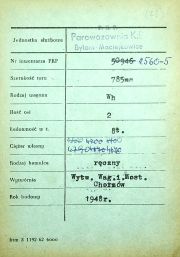 P. K. P.
Jednostka służbowa
Parowozownia Kl.
Bytom Maciejkowice
Nr inwentarza PKP
50946 2560-5
Szerokość toru
785mm
Rodzaj wagonu
Wh
Ilość osi
2
Ładowność w t.
8t.
Ciężar własny
Rodzaj hamulca
ręczny
Wytwórnia
Wytw. Wag.i.Most.
Chorzów
Rok budowy
1948r.